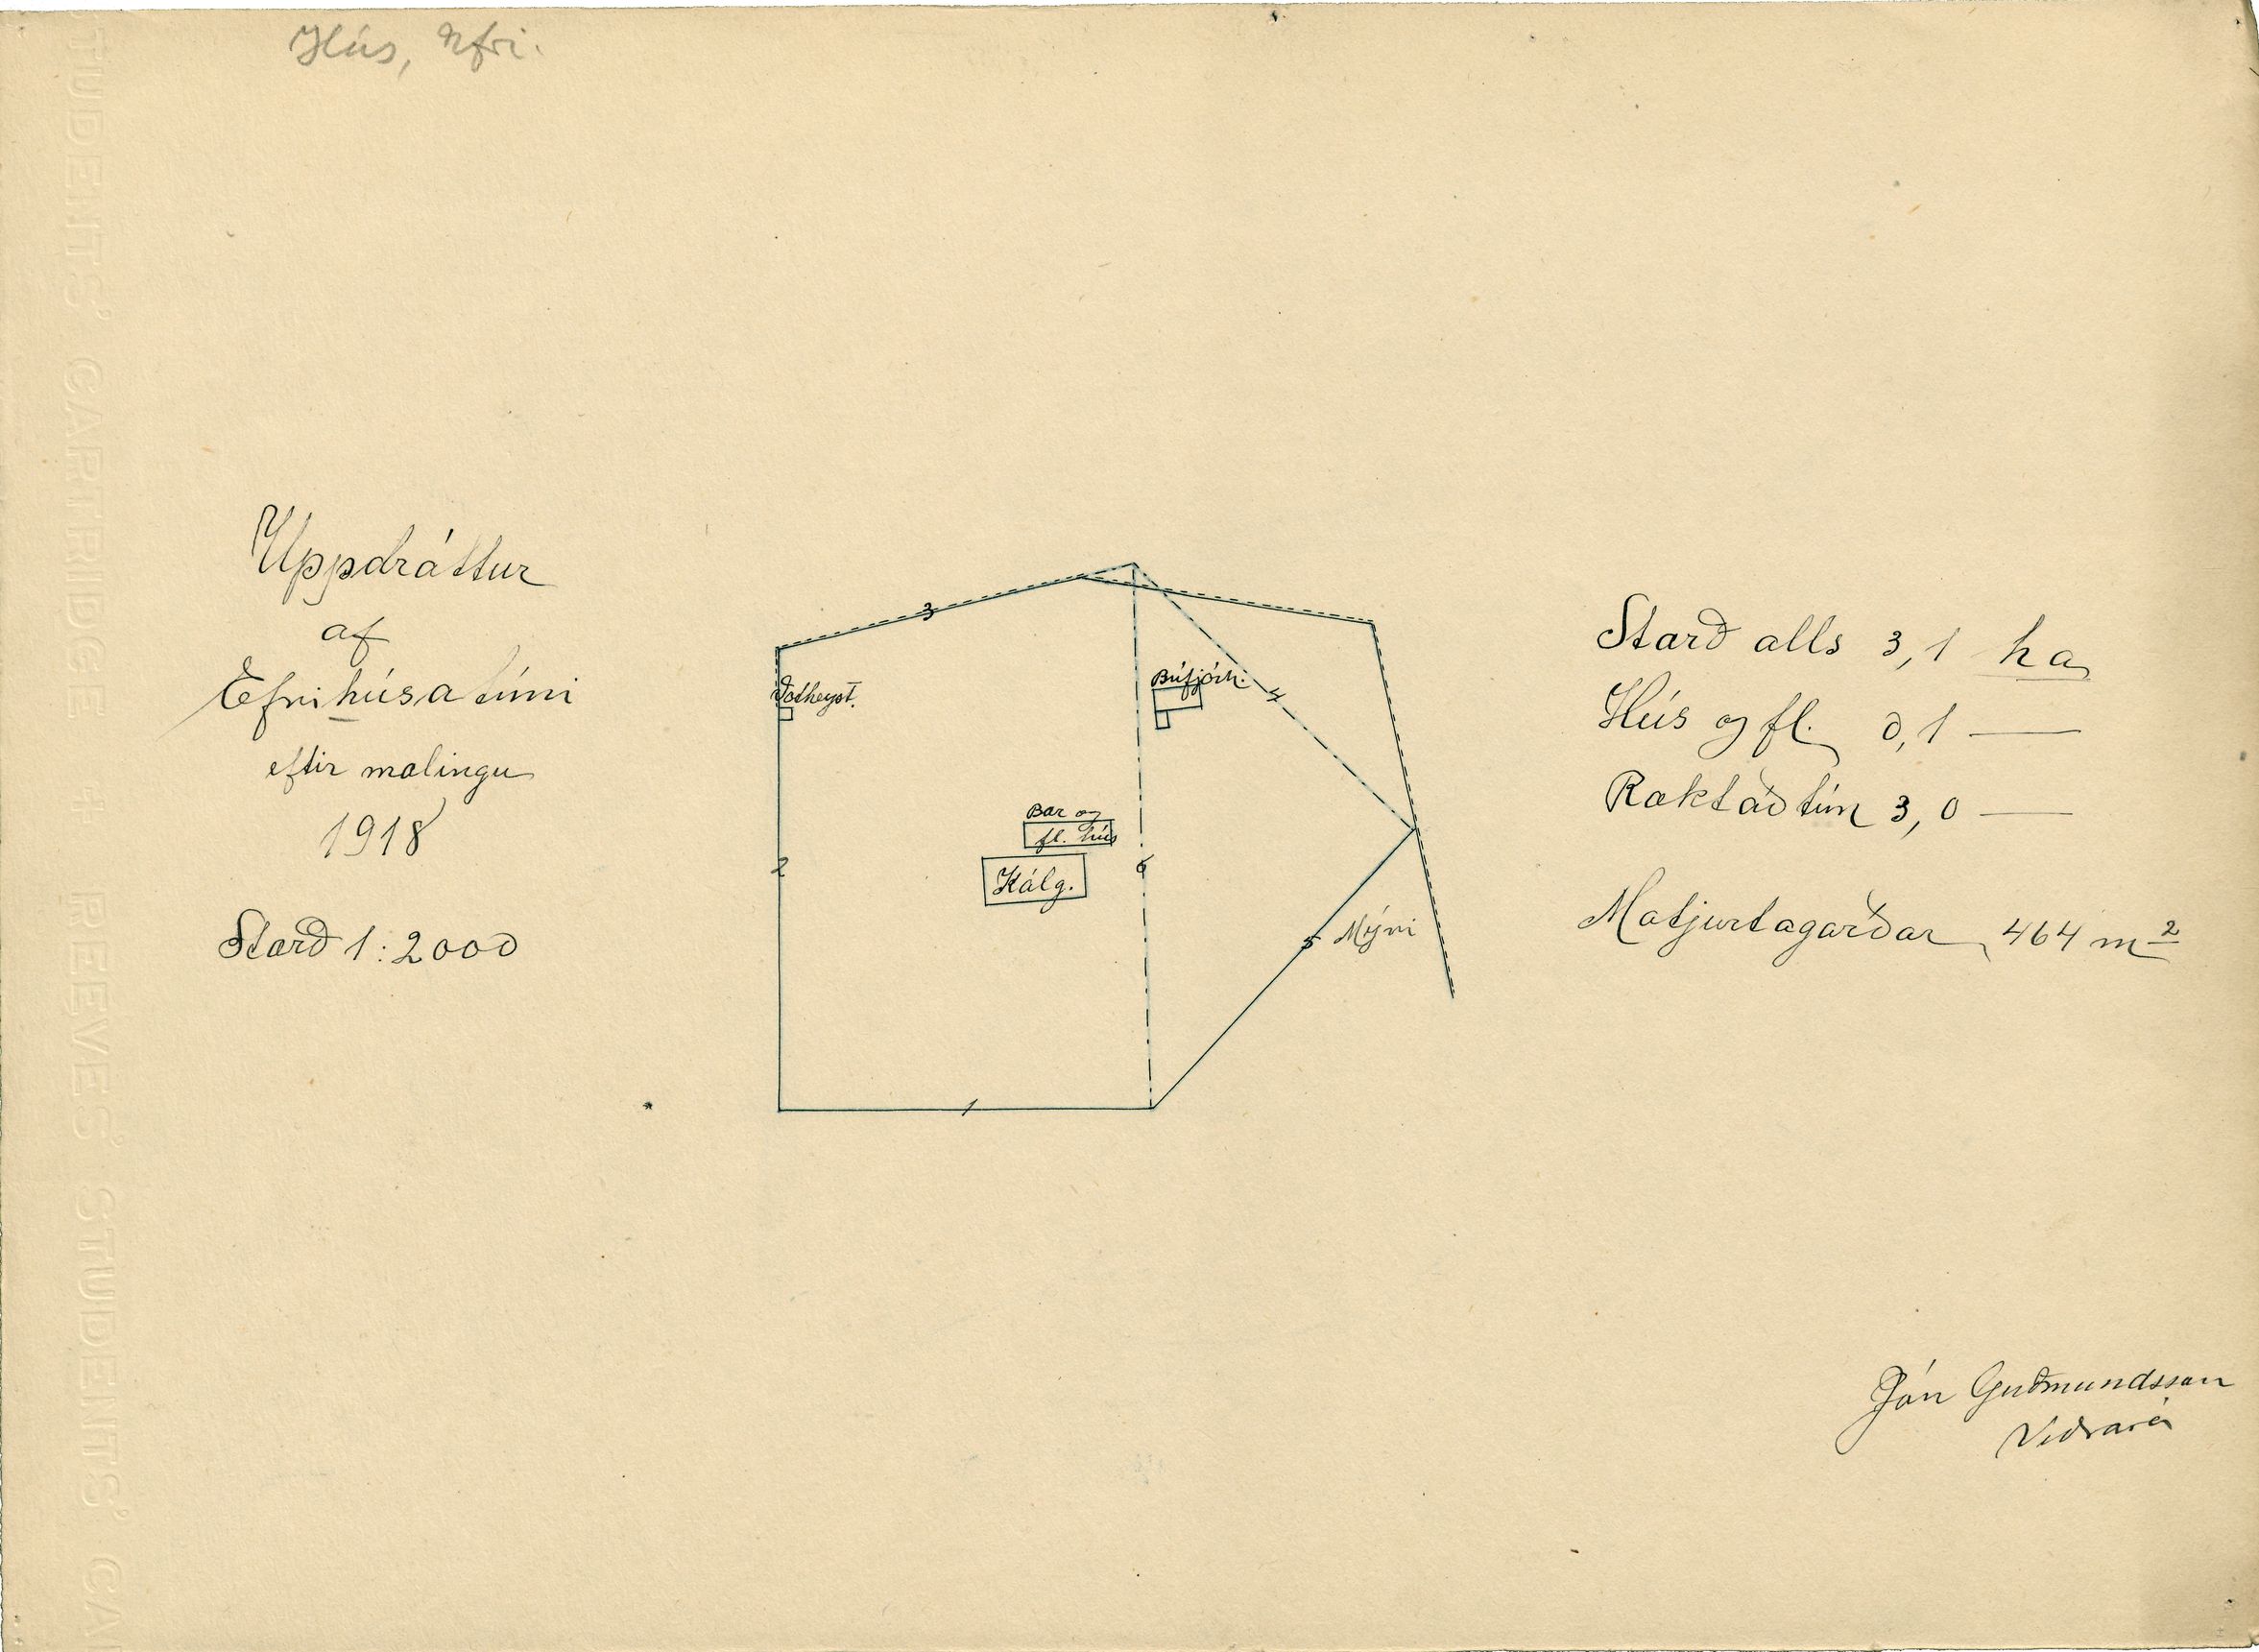 Hús, Efri.
Uppdráttur
af
Efrihúsatúni
eftir mælingu
1918
Stærð 1:2000
3
Votheyst.
Búfjárh.
4
Bær og
fl. hús
2
6
Kálg.
5
Mýri
1
Stærð alls 3,1 ha
Hús og fl. 0,1 —
Ræktað tún 3,0 —
Matjurtagarðar 464 m²
Jón Guðmundsson
STUDENTS' CARTRIDGE + REEVES' STUDENTS' CA